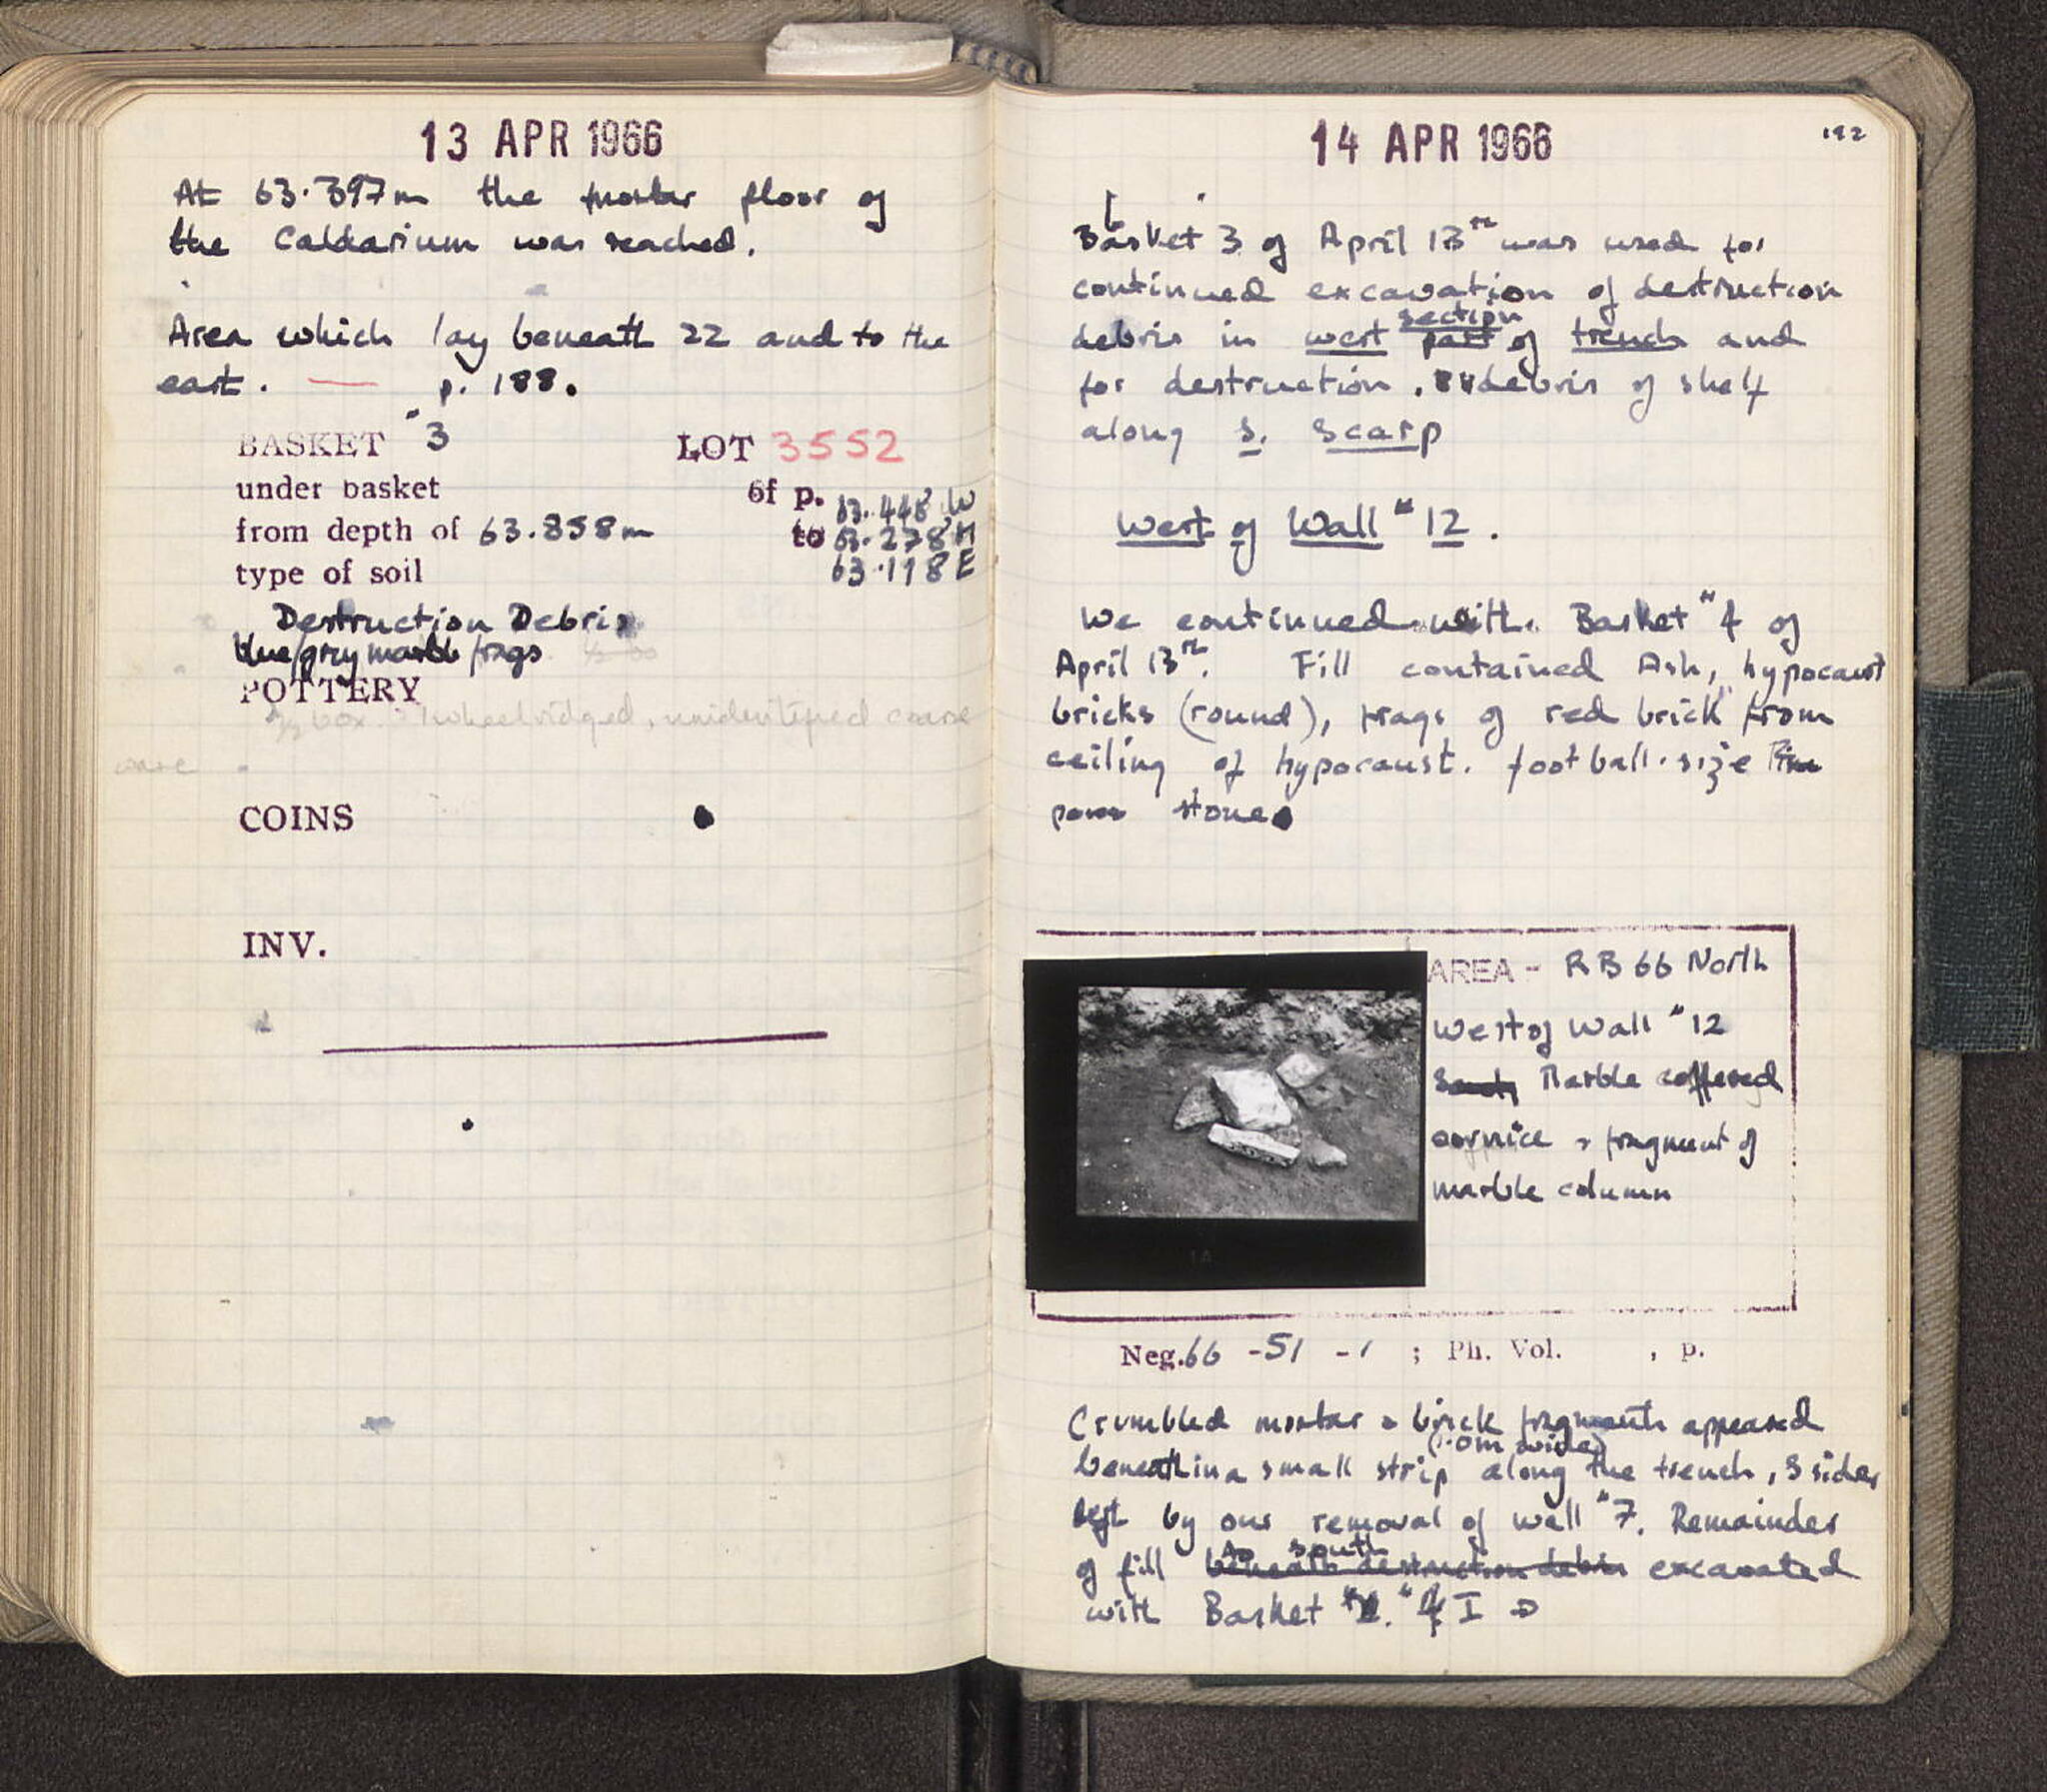 13 APR 1966
At 63.397m the mortar floor of
the Caldarium was reached.
Area which lay beneath 22 and to the
east. — p. 188.
BASKET "3 LOT 3552
under basket of p. 63.448 W
from depth of 63.858m to 63.278 M
type of soil 63.118 E
Destruction Debris
blue/grey marble frags
POTTERY
box. wheelridged, unidentified coarse
ware
COINS
INV.
14 APR 1966
192
Basket 3 of April 13th was used for
continued excavation of destruction
section
debris in west part of trench and
for destruction debris of shelf
along S. Scarp
West of Wall "12.
We continued with Basket "4 of
April 13th. Fill contained Ash, hypocaust
bricks (round), frags of red brick from
ceiling of hypocaust. football-size
stones
AREA - RB 66 North
West of Wall "12
Marble coffered
cornice + fragment of
marble column
1A
Neg. 66 -51 -1 ; Ph. Vol. , p.
Crumbled mortar & brick fragments appeared
(1.0m wide)
beneath in a small strip along the trench, S side,
left by our removal of wall "7. Remainder
to south
of fill beneath destruction debris excavated
with Basket I